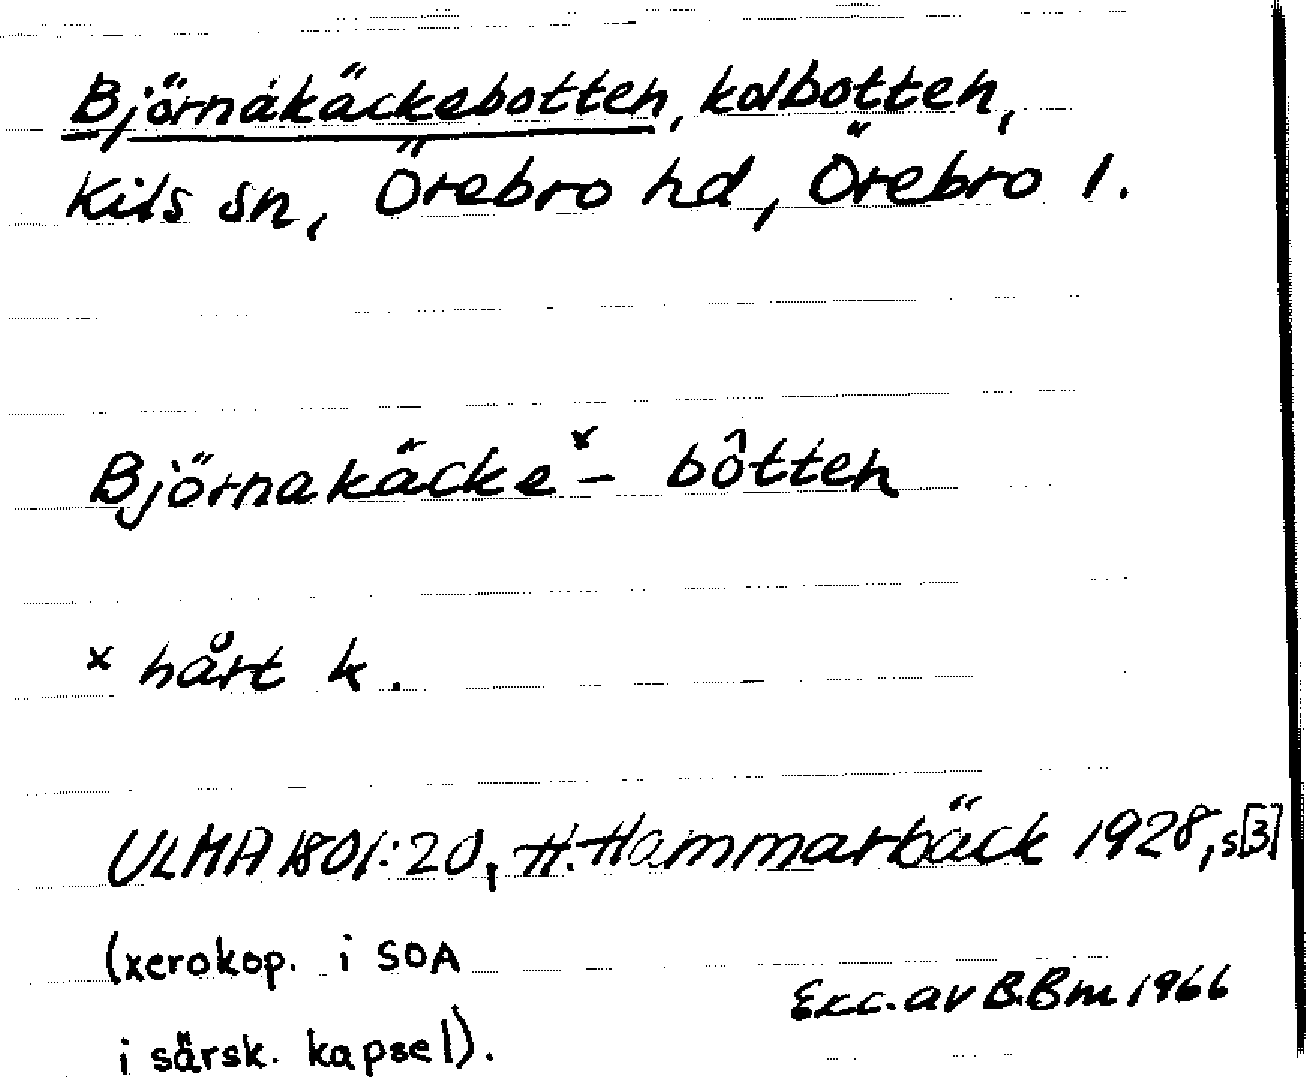 Björnakäckebotten, kolbotten,
Kils sn, Örebro hd, Örebro l.
Björnakäcke˟- bôtten
x hårt k.
ULMA 1801:20, H. Hammarbäck 1928, s[3]
(xerokop. i SOA
i särsk. kapsel).
Exc. av B.Bm 1966